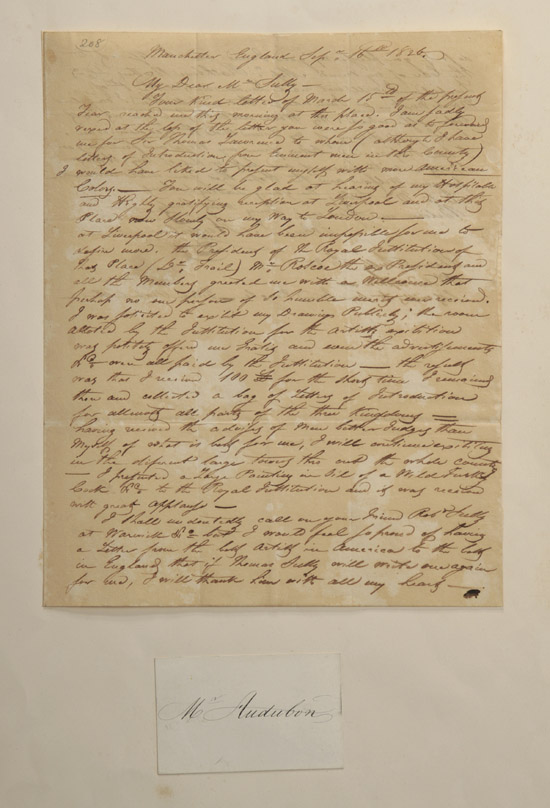 208
Manchester England Sepr. 16th 1826
My Dear Mr Sully —
Your Kind letter of March 15th of the present
Year reached me this morning at this place. I am sadly
vexed at the loss of the letter you were so good as to forward
me for Sir Thomas Lawrence to whom (although I have
letters of Introduction from Eminent men in this Country)
I would have liked to present myself with more American
Colors. — You will be glad at hearing of my Hospitable
and Highly gratifying reception at Liverpool and at this
Place now on my Way to London. —
at Liverpool it would have been impossible for me to
desire more. the President of the Royal Institution of
that Place (Dr. Trail) Mr. Roscoe the President and
all the Members greeted me with a Wellcome that
perhaps no one person of so humble merits ever received.
I was solicited to exibit my Drawings Publickly; the room
alloted by the Institution for the Artists exibition
was politely offered me Gratis and even the advertisements
&c were all paid by the Institution — the result
was that I received 100 for the short time I remained
there and collected a bag of Letters of Introductions
for allmost all parts of the three Kingdoms —
having received the advises of Men better Judges than
Myself of what is best for me, I will continue exibiting
in the different large towns thro out the whole country
— I presented a large Painting in Oil of a Wild Turkey
Cock &c to the Royal Institution and it was received
with great applause —
I shall undoubtedly call on your friend Robt Sully
at Warwick &c but I would feel so proud of having
a Letter from the best Artist in America to the best
in England, that if Thomas Sully will write once again
for me, I will thank him with all my heart —
Mr Audubon